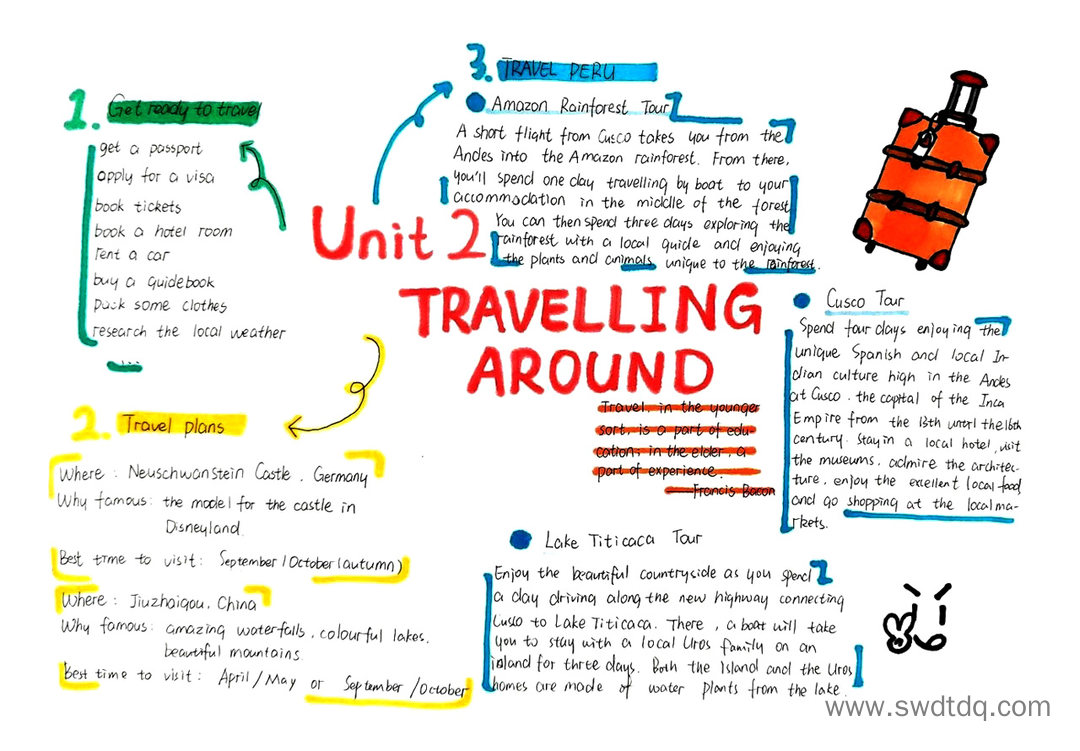 Unit 2
TRAVELLING
AROUND
1. Get ready to travel
get a passport
apply for a visa
book tickets
book a hotel room
rent a car
buy a guidebook
pack some clothes
research the local weather
...
2. Travel plans
Where: Neuschwanstein Castle, Germany
Why famous: the model for the castle in
Disneyland.
Best time to visit: September/October(autumn)
Where: Jiuzhaigou, China
Why famous: amazing waterfalls, colourful lakes,
beautiful mountains
Best time to visit: April/May or September/October
3. TRAVEL PERU
Amazon Rainforest Tour
A short flight from Cusco takes you from the
Andes into the Amazon rainforest. From there,
you'll spend one day travelling by boat to your
accommodation in the middle of the forest
You can then spend three days exploring the
rainforest with a local guide and enjoying
the plants and animals unique to the rainforest.
Cusco Tour
Spend four days enjoying the
unique Spanish and local In-
dian culture high in the Andes
at Cusco. the capital of the Inca
Empire from the 13th until the 16th
century. Stay in a local hotel, visit
the museums, admire the architec-
ture, enjoy the excellent local food,
and go shopping at the local ma-
rkets.
Travel, in the younger
sort, is a part of edu-
cation; in the elder, a
part of experience.
——Francis Bacon
Lake Titicaca Tour
Enjoy the beautiful countryside as you spend
a day driving along the new highway connecting
Cusco to Lake Titicaca. There, a boat will take
you to stay with a local Uros family on an
island for three days. Both the island and the Uros
homes are made of water plants from the lake.
www.swdtdq.com